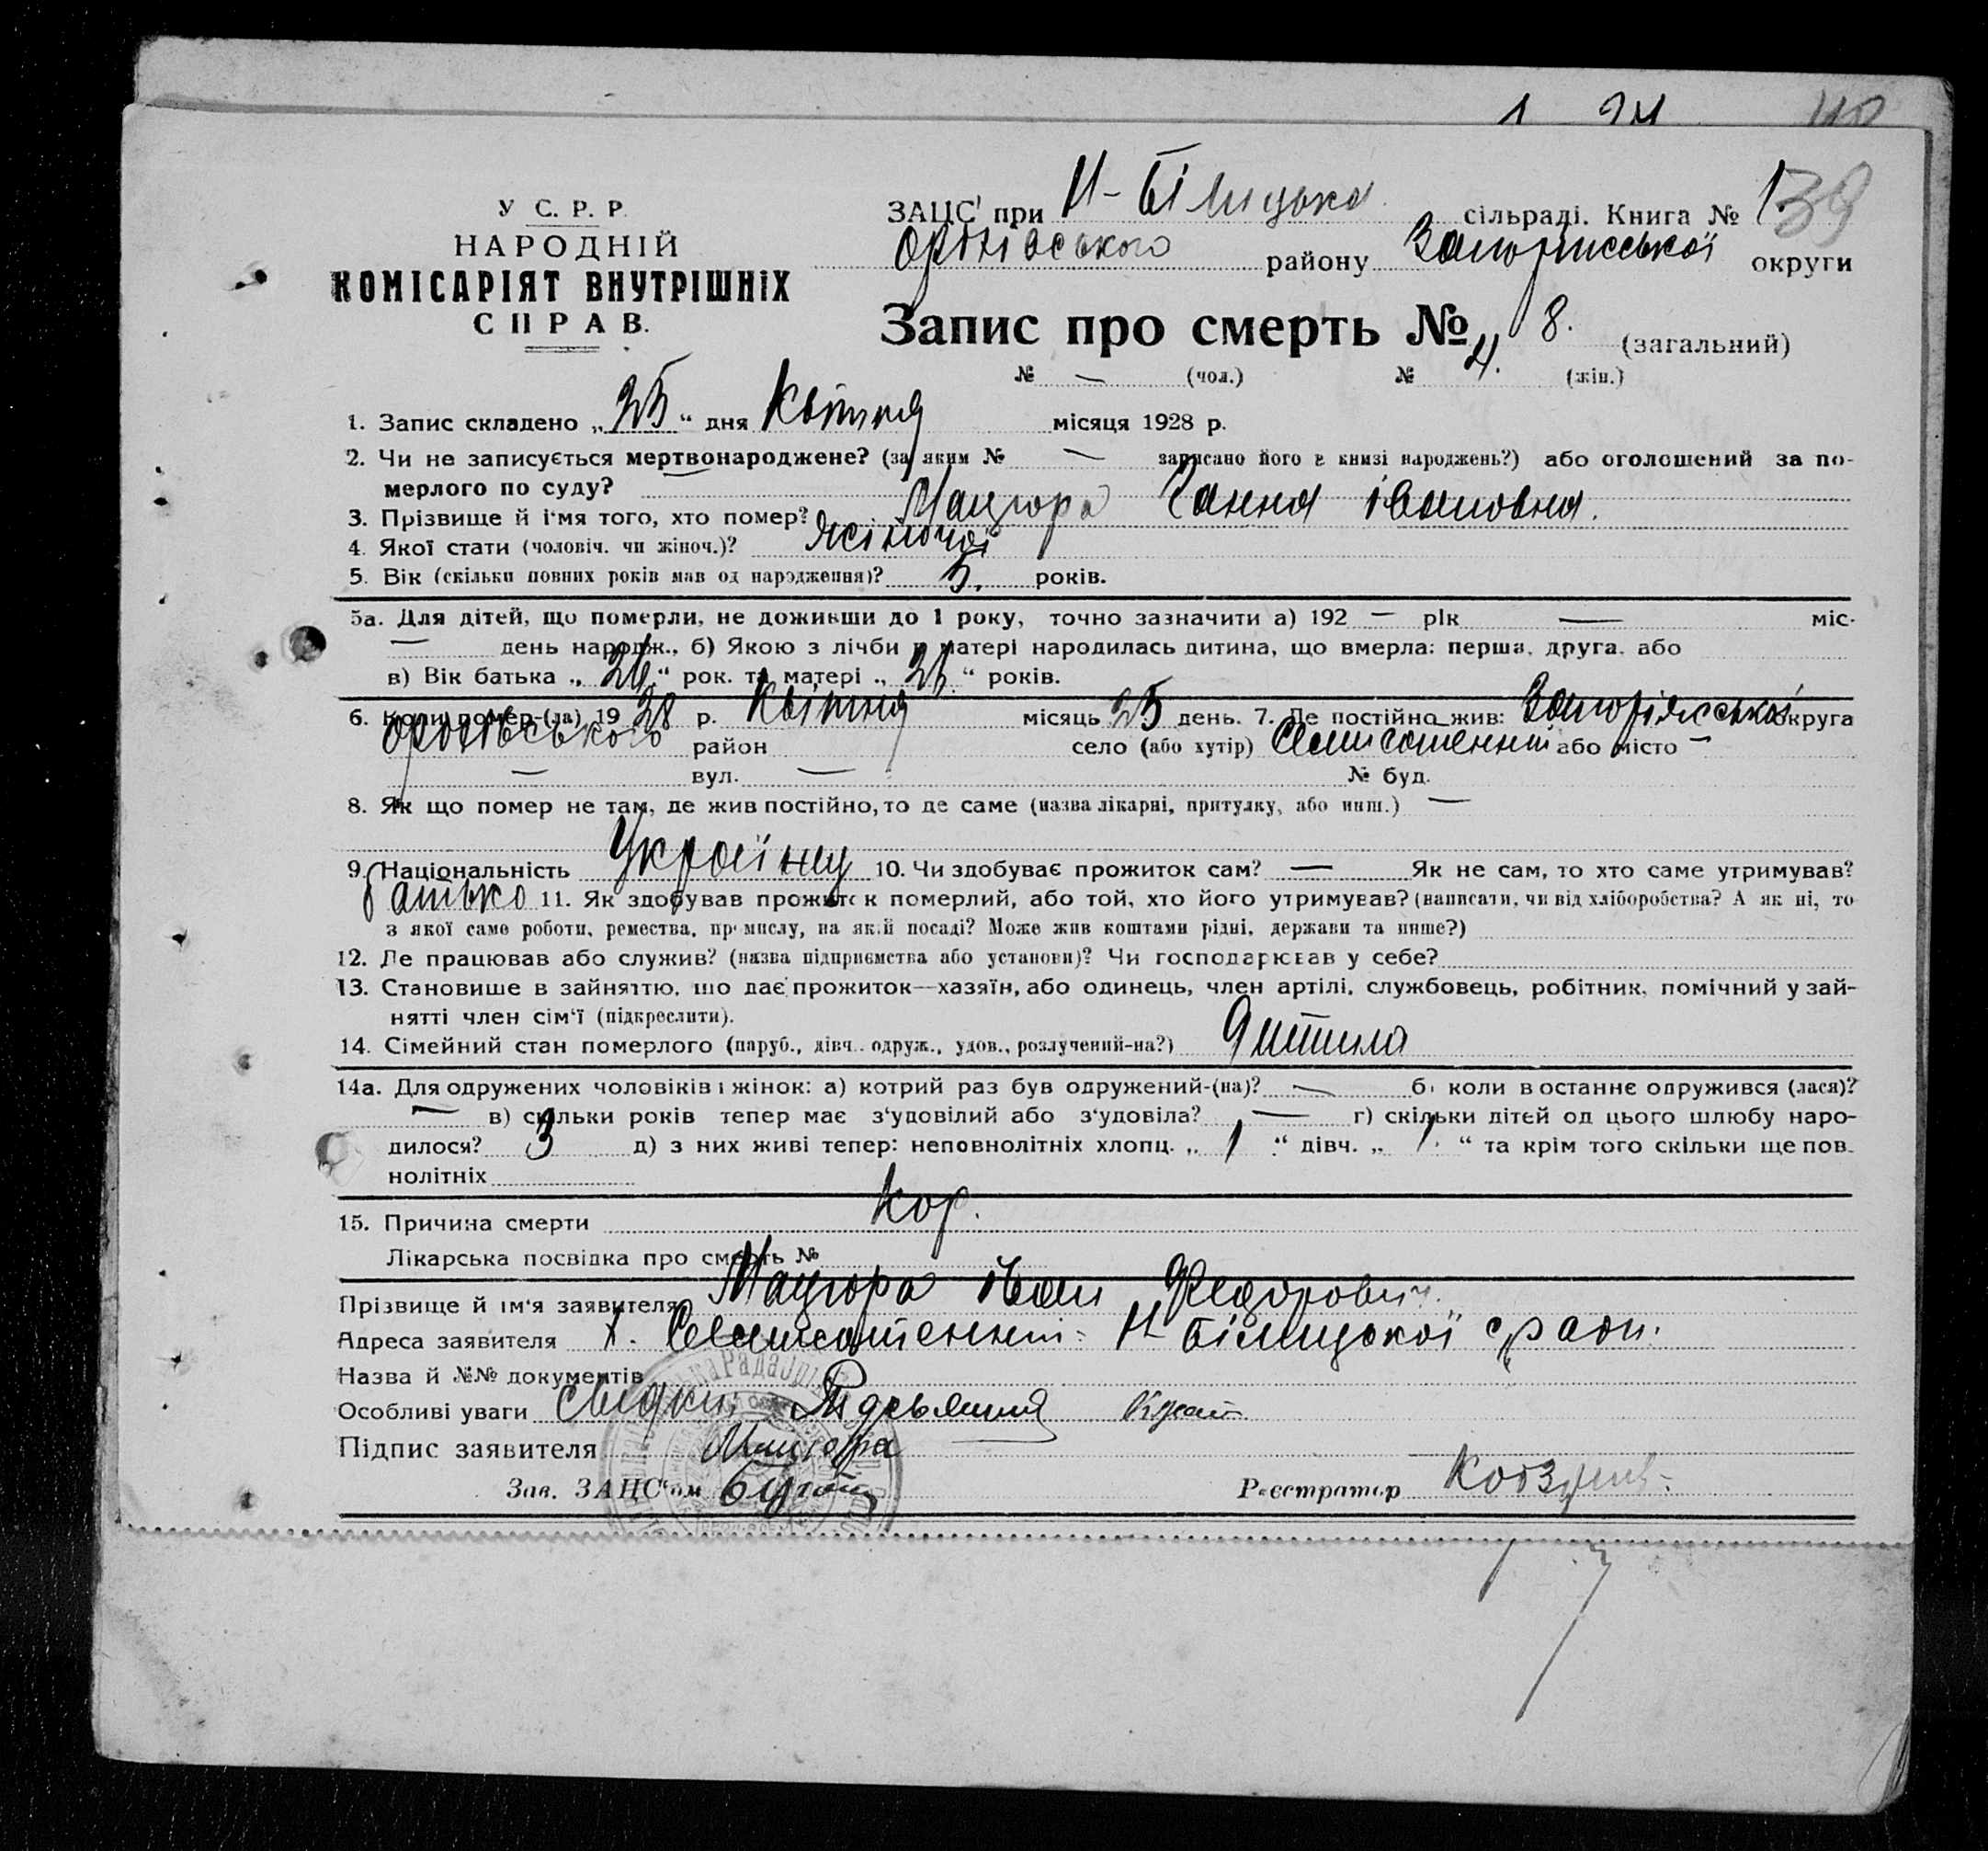 1 94 40
У С. Р. Р.
НАРОДНІЙ
КОМІСАРІЯТ ВНУТРІШНІХ
СПРАВ.
ЗАЦС' при Н-Білицька сільраді. Книга № 1 39
Оріхівського району Запоріжської округи
Запис про смерть № 8. (загальний)
№ — (чол.) № 4. (жін.)
1. Запис складено „25“ дня Квітня місяця 1928 р.
2. Чи не записується мертвонароджене? (за яким № — записано його в книзі народжень?) або оголошений за по-
мерлого по суду?
3. Прізвище й і'мя того, хто помер? Мацюра Ганна Івановна.
4. Якої стати (чоловіч. чи жіноч.)? жіночої
5. Вік (скільки повних років мав од народження)? 5. років.
5а. Для дітей, що померли, не доживши до 1 року, точно зазначити а) 192 — рік — міс.
— день народж., б) Якою з лічби у матері народилась дитина, що вмерла: перша, друга, або
в) Вік батька „ “ рок. та матері „ “ років.
6. Коли помер-(ла) 1928 р. Квітня місяць 25 день. 7. Де постійно жив: Запоріжської округа
Оріхівського район село (або хутір) або місто —
— вул. — № буд.
8. Як що помер не там, де жив постійно, то де саме (назва лікарні, притулку, або инш.) —
9. Національність Україн 10. Чи здобуває прожиток сам? — Як не сам, то хто саме утримував?
батько 11. Як здобував прожиток померлий, або той, хто його утримував? (написати, чи від хліборобства? А як ні, то
з якої саме роботи, ремества, промислу, на якій посаді? Може жив коштами рідні, держави та инше?)
12. Де працював або служив? (назва підприємства або установи)? Чи господарював у себе?
13. Становище в зайняттю, що дає прожиток—хазяїн, або одинець, член артілі, службовець, робітник, помічний у зай-
нятті член сім'ї (підкреслити).
14. Сімейний стан померлого (паруб., дівч., одруж., удов., розлучений-на?) дитина
14а. Для одружених чоловіків і жінок: а) котрий раз був одружений-(на)? — б) коли востаннє одружився (лася)?
— в) скільки років тепер має з'удовілий або з'удовіла? — г) скільки дітей од цього шлюбу наро-
дилося? 3 д) з них живі тепер: неповнолітніх хлопц. „ 1 “ дівч. „ 1 “ та крім того скільки ще пов-
нолітніх
15. Причина смерти Кор.
Лікарська посвідка про смерть №
Прізвище й ім'я заявителя Мацюра Іван Федорович.
Адреса заявителя х. Н Біліцької с ради.
Назва й №№ документів
Особливі уваги свідки:
Підпис заявителя Мацюра
Зав. ЗАЦС'ом Реєстратор